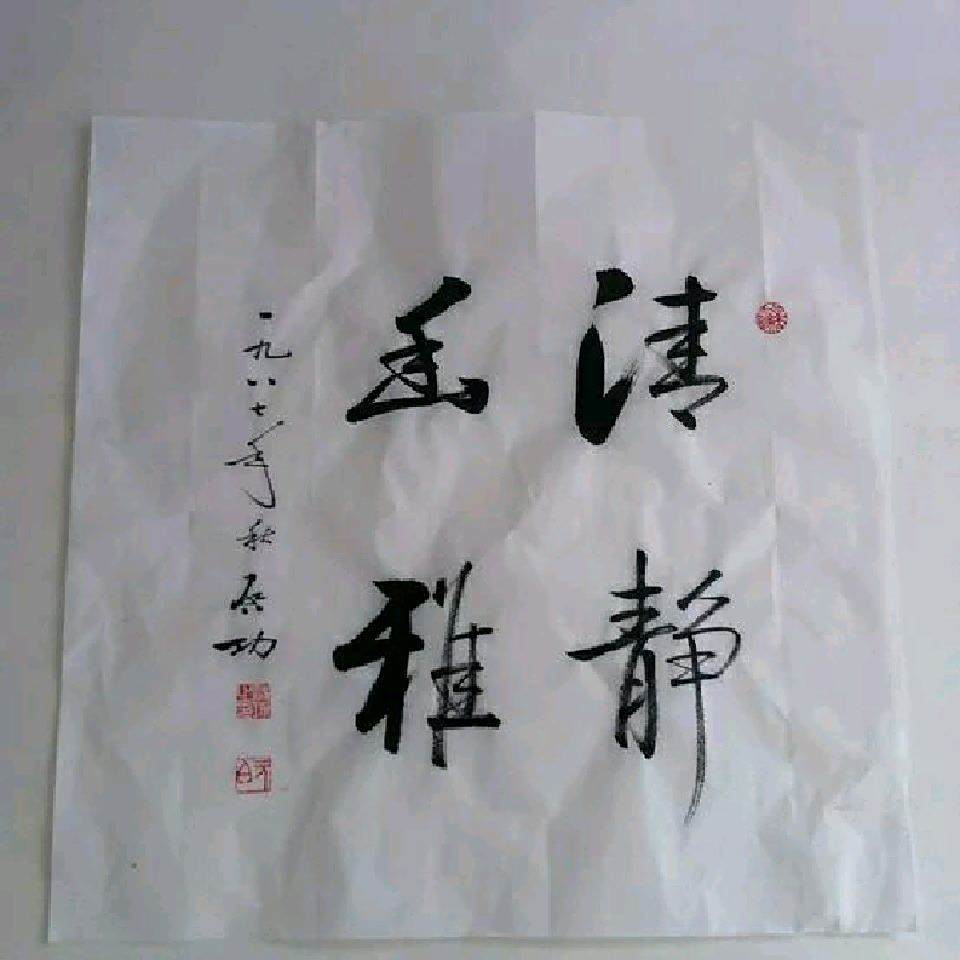 清静
幽雅
一九八七年秋启功